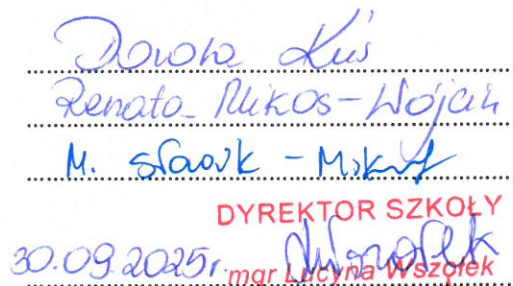 Dorota Kuś
Renata Mikos-Wójcik
M.
DYREKTOR SZKOŁY
30.09.2025r. mgr Lucyna Wszołek